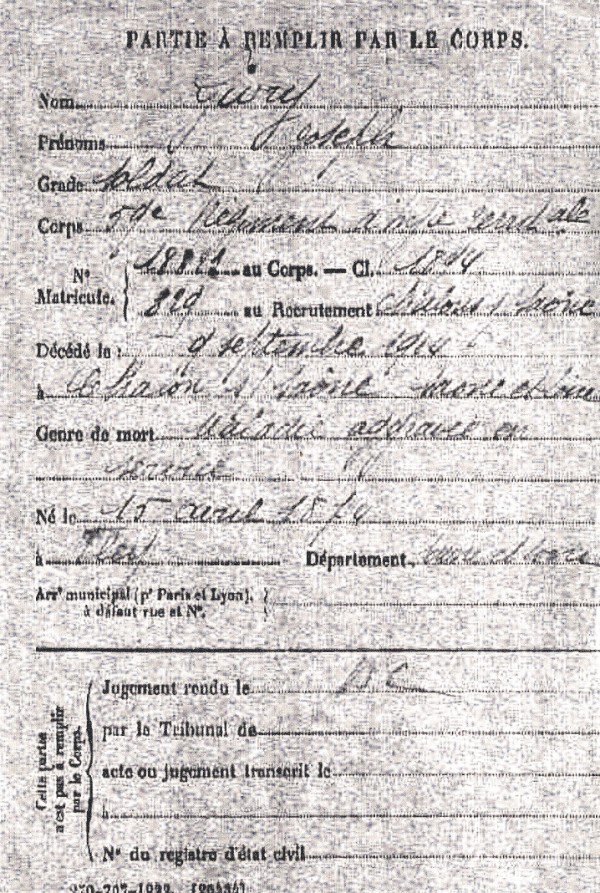 PARTIE À REMPLIR PAR LE CORPS.
Nom
Prénoms Joseph
Grade Soldat
Corps 5de Régiment d'inf
N° Matricule. { au Corps. — Cl. 1894
829 au Recrutement Châlons s/ Saône
Décédé le : 9 septembre 1914
à Chalon s/ Saône Saône et Loire
Genre de mort Maladie aggravée en
service
Né le 15 avril 1874
à Département Saône et Loire
Arrt municipal (pr Paris et Lyon), à défaut rue et N°. }
Cette partie n'est pas à remplir par le Corps.
Jugement rendu le
par le Tribunal de
acte ou jugement transcrit le
à
N° du registre d'état civil